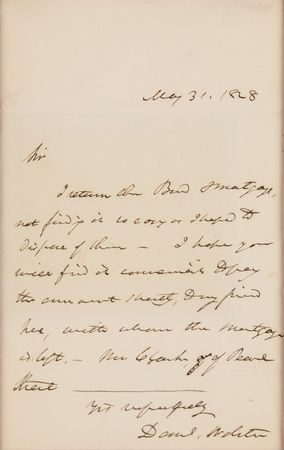 May 31. 1828
Sir
I return the Bond & mortgage,
not finding it so easy as I hoped to
dispose of them — I hope you
will find it convenient to pay
the amount shortly, to my friend
here, with whom the mortgage
is left. — Mr Clark, of Pearl
Street
Yrs respectfully
Danl. Webster